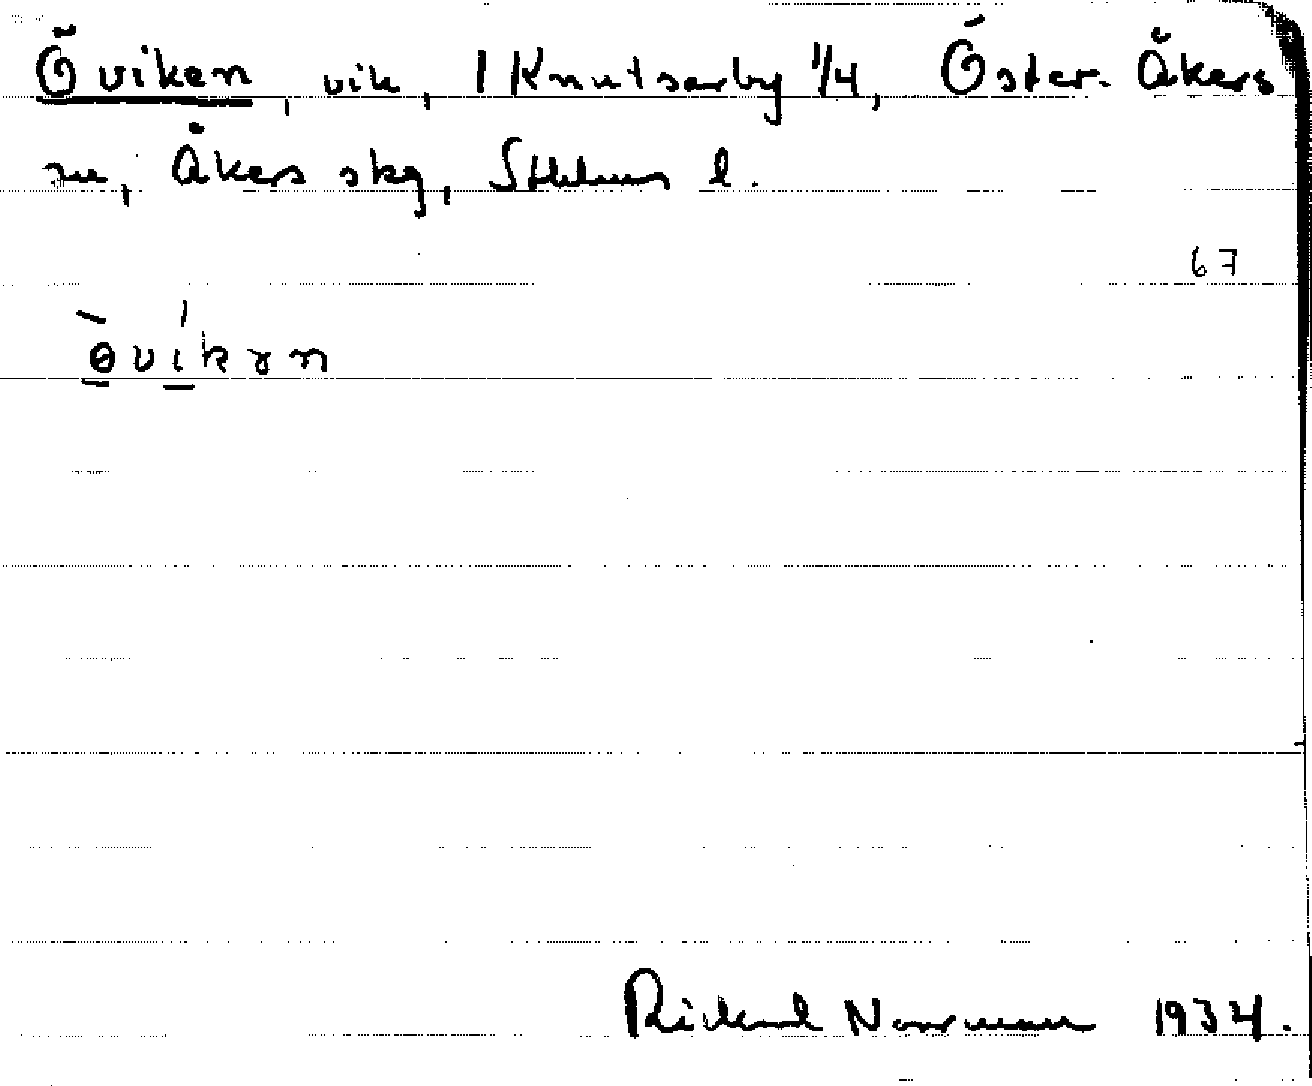 Öviken, vik, 1 Knutsarby 1/4, Öster-Åkers
sn, Åkers skg, Sthlms l.
67
ò̱vi̱kɤn
Rickard Norrman 1934.